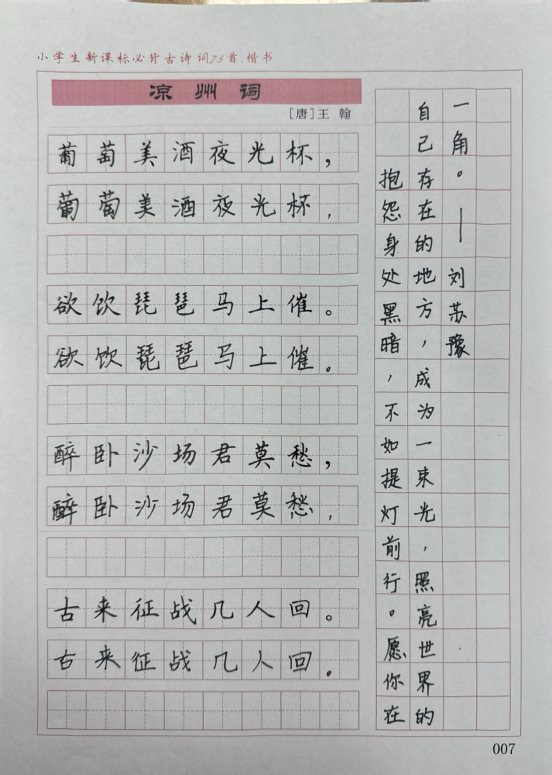 小学生新课标必背古诗词75首.楷书
凉州词
[唐]王 翰
葡萄美酒夜光杯，
葡萄美酒夜光杯，
欲饮琵琶马上催。
欲饮琵琶马上催。
醉卧沙场君莫愁，
醉卧沙场君莫愁，
古来征战几人回。
古来征战几人回。
抱怨身处黑暗，不如提灯前行。愿你在
自己存在的地方，成为一束光，照亮世界的
一角。——刘苏豫
007